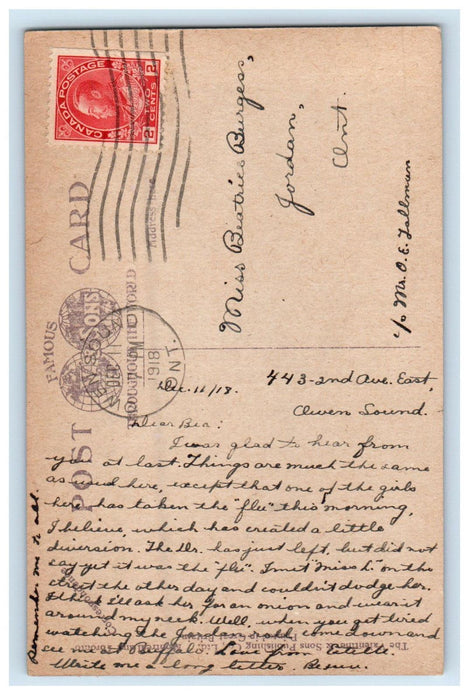 CANADA POSTAGE
2 TWO 2
CENTS
POST CARD
FAMOUS
SONS
THROUGHOUT THE WORLD
Address Here
OWEN SOUND
1918
ONT.
Miss Beatrice Burgess,
Jordan,
Ont.
c/o Mr. O. E. Tallman
443-2nd Ave. East,
Dec. 11/18.
Owen Sound.
Dear Bea:
I was glad to hear from
you at last. Things are much the same
as used here, except that one of the girls
here has taken the "flu" this morning,
I believe, which has created a little
diversion. The Dr. has just left, but did not
say yet it was the "flu". I met Miss on the
street the other day and couldn't dodge her.
I think I'll ask her for an onion and wear it
around my neck. Well, when you get tired
watching the come down and
see me at Buffalo. Love from
Write me a long letter.
Remember me to all.
The Valentine & Sons Publishing Co., Ltd., Montreal and Toronto
Printed in Great Britain